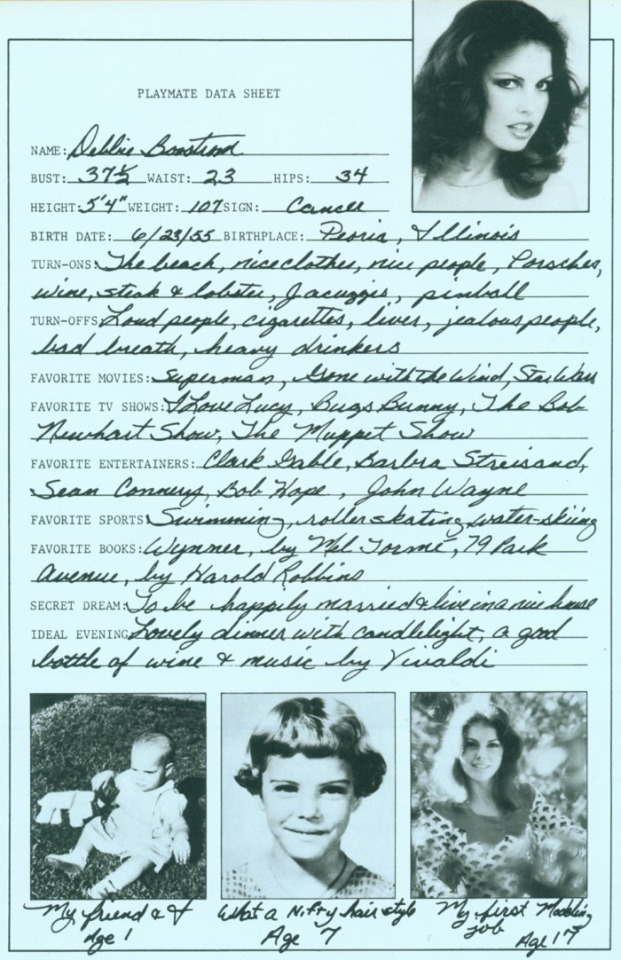 PLAYMATE DATA SHEET
NAME: Debbie Boostrom
BUST: 37½ WAIST: 23 HIPS: 34
HEIGHT: 5'4" WEIGHT: 107 SIGN: Cancer
BIRTH DATE: 6/23/55 BIRTHPLACE: Peoria, Illinois
TURN-ONS: The beach, nice clothes, nice people, Porsches,
wine, steak & lobster, Jacuzzis, pinball
TURN-OFFS: Loud people, cigarettes, liver, jealous people,
bad breath, heavy drinkers
FAVORITE MOVIES: Superman, Gone with the Wind, Star Wars
FAVORITE TV SHOWS: I Love Lucy, Bugs Bunny, The Bob
Newhart Show, The Muppet Show
FAVORITE ENTERTAINERS: Clark Gable, Barbra Streisand,
Sean Connery, Bob Hope, John Wayne
FAVORITE SPORTS: Swimming, roller skating, water-skiing
FAVORITE BOOKS: Wynner, by Mel Tormé, 79 Park
Avenue, by Harold Robbins
SECRET DREAM: To be happily married & live in a nice house
IDEAL EVENING: Lovely dinner with candlelight, a good
bottle of wine & music by Vivaldi
My friend & I
Age 1
What a nifty hair style
Age 7
My first Modeling
job
Age 17